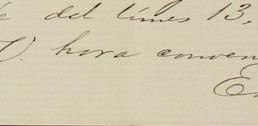 del lúnes 13,
V. hora conven